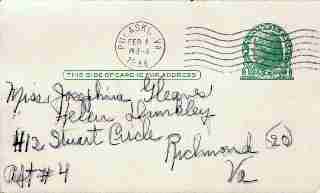 PULASKI, VA
FEB 1
THIS SIDE OF CARD IS FOR ADDRESS
Miss Josephine Gleaves
#12 Stuart Circle
Richmond (20)
Apt #4
Va